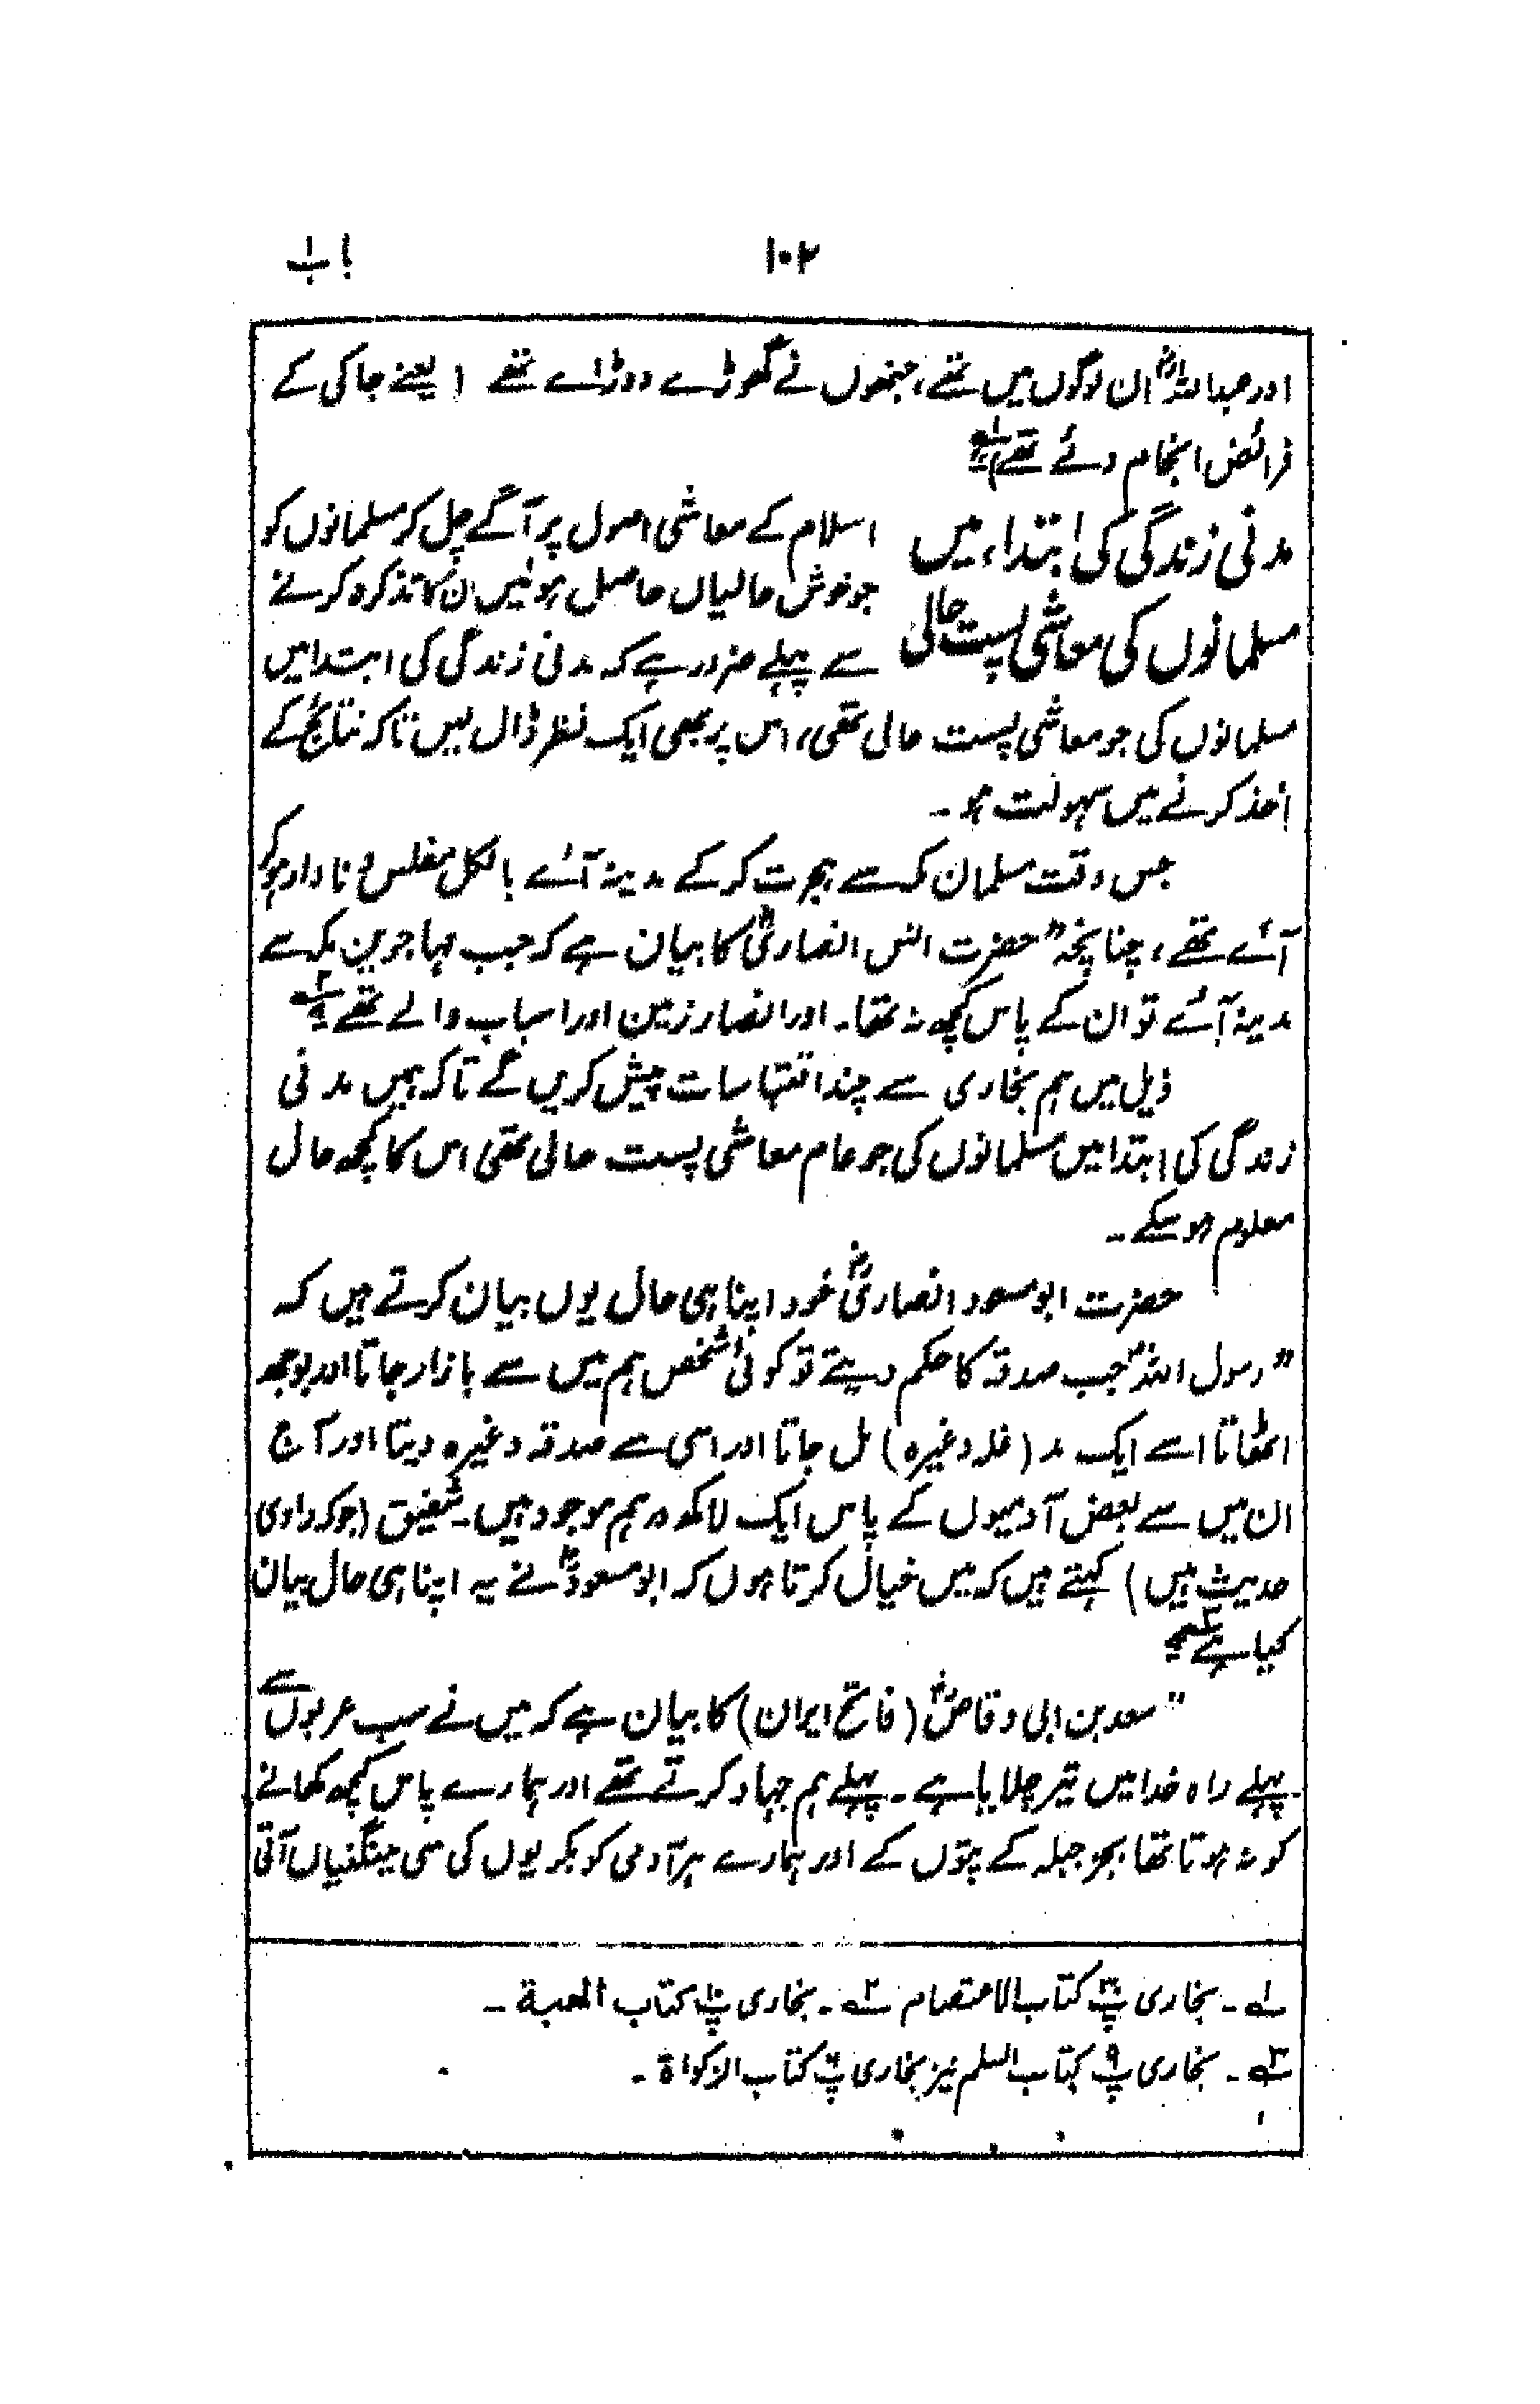 ۱۰۲ باب
اور عبداللہؓ ان لوگوں میں تھے، جنھوں نے گھوڑے دوڑائے تھے (یعنے جاکی کے
فرائض انجام دئے تھے)۱؎
مدنی زندگی کی ابتداء میں
مسلمانوں کی معاشی پست حالی
اسلام کے معاشی اصول پر آگے چل کر مسلمانوں کو
جو خوش حالیاں حاصل ہوئیں ان کا تذکرہ کرنے
سے پہلے ضرور ہے کہ مدنی زندگی کی ابتدا میں
مسلمانوں کی جو معاشی پست حالی تھی، اس پر بھی ایک نظر ڈال لیں تاکہ نتائج کے
اخذ کرنے میں سہولت ہو۔
جس وقت مسلمان مکہ سے ہجرت کر کے مدینہ آئے بالکل مفلس و نادار ہوکر
آئے تھے، چنانچہ "حضرت انس انصاریؓ کا بیان ہے کہ جب مہاجرین مکہ سے
مدینہ آئے تو ان کے پاس کچھ نہ تھا۔ اور انصار زمین اور اسباب والے تھے ۲؎
ذیل میں ہم بخاری سے چند اقتباسات پیش کریں گے تاکہ ہمیں مدنی
زندگی کی ابتدا میں مسلمانوں کی جو عام معاشی پست حالی تھی اس کا کچھ حال
معلوم ہوسکے۔
حضرت ابومسعود انصاریؓ خود اپنا ہی حال یوں بیان کرتے ہیں کہ
"رسول اللہؐ جب صدقہ کا حکم دیتے تو کوئی شخص ہم میں سے بازار جاتا اور بوجھ
اٹھاتا اسے ایک مد (غلہ وغیرہ) مل جاتا اور اسی سے صدقہ وغیرہ دیتا اور آج
ان میں سے بعض آدمیوں کے پاس ایک لاکھ درہم موجود ہیں۔ شفیق (جو کہ راوی
حدیث ہیں) کہتے ہیں کہ میں خیال کرتا ہوں کہ ابومسعودؓ نے یہ اپنا ہی حال بیان
کیا ہے ۳؎
"سعد بن ابی وقاصؓ (فاتح ایران) کا بیان ہے کہ میں نے سب عربوں سے
پہلے راہ خدا میں تیر چلایا ہے۔ پہلے ہم جہاد کرتے تھے اور ہمارے پاس کچھ کھانے
کو نہ ہوتا تھا بجز حبلہ کے پتوں کے اور ہمارے ہر آدمی کو بکریوں کی سی مینگنیاں آتی
۱؎۔ بخاری پ کتاب الاعتصام ۲؎۔ بخاری پ۱۰ کتاب الھبة۔
۳؎۔ بخاری پ۹ کتاب السلم نیز بخاری پ کتاب الزکواة۔